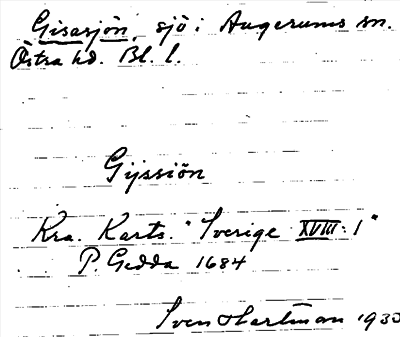 Gisasjön, sjö i Augerums sn.
Östra hd. Bl. l.
Gijssiön
Kra. Karts. "Sverige XVIII: 1"
P. Gedda 1684
Sven Hartman